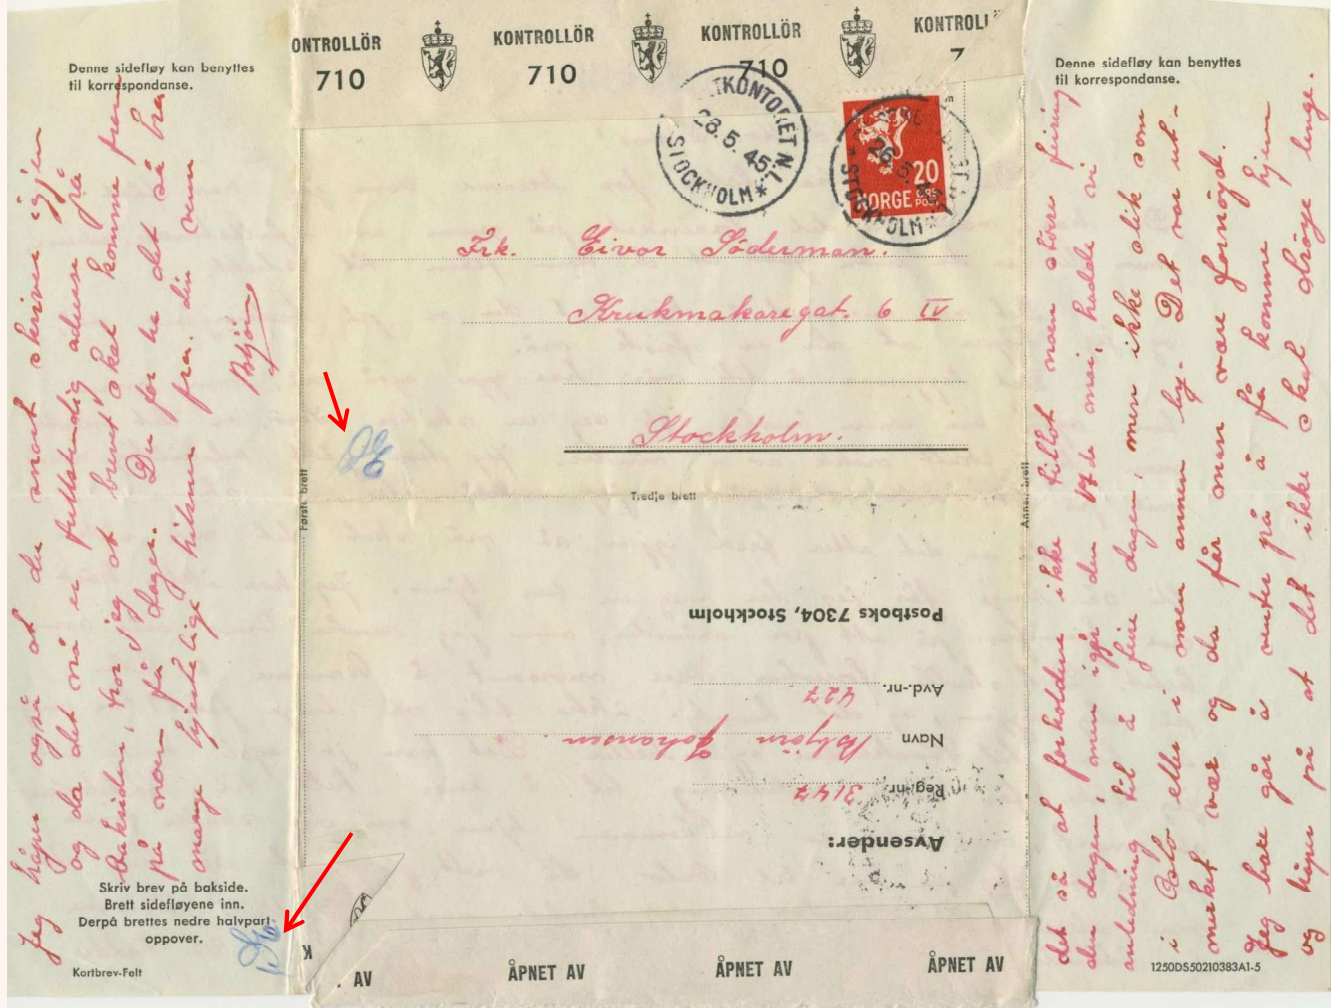 ONTROLLÖR KONTROLLÖR KONTROLLÖR KONTROLL
710 710 710 7
Denne sidefløy kan benyttes
til korrespondanse.
Jeg håper også at du snart skriver igjen
og da det nå er fullstendig adresse på
baksiden, tror jeg at brevet skal komme fram
på noen få dager. Du får ha det så bra
mange hjertelige hilsner fra din venn
Asbjörn
Skriv brev på bakside.
Brett sidefløyene inn.
Derpå brettes nedre halvpart
oppover.
Kortbrev-Felt
TKONTORET N.1
28.5.45
STOCKHOLM
20
NORGE
ØRE
POST
26.5.45
STOCKHOLM
Frk. Eivor Söderman.
Krukmakaregat. 6 IV
Stockholm.
Første brett
Tredje brett
Annen brett
Postboks 7304, Stockholm
Avd.-nr. 427
Navn Asbjörn Johansen.
Reg.-nr. 3147
Avsender:
K
AV ÅPNET AV ÅPNET AV ÅPNET AV
Denne sidefløy kan benyttes
til korrespondanse.
det så at forholdene ikke tillot noen större feiring
den dagen, men igår den 17de mai, hadde vi
anledning til å feire dagen, men ikke slik som
i Oslo eller i noen annen by. Det var ut-
merket vær og da får man være fornöyd.
Jeg bare går å venter på å få komme hjem
og håper på at det ikke skal dröye lenge.
1250DS50210383A1-5